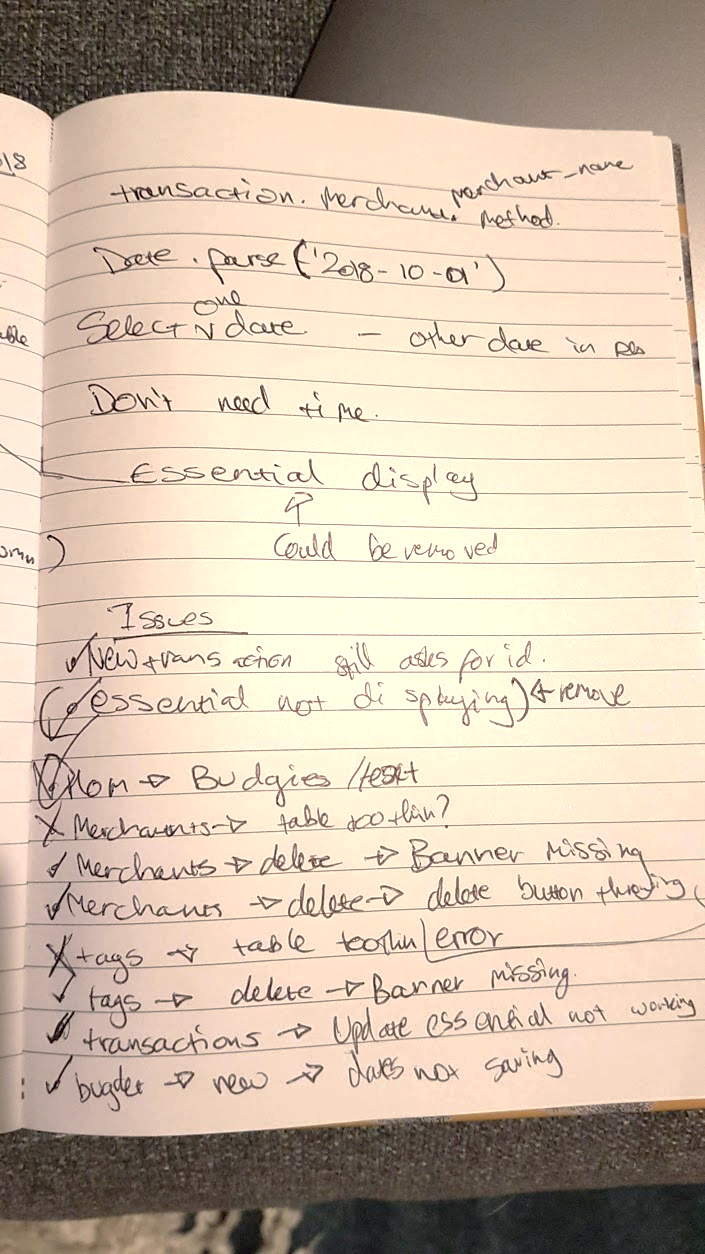 18
merchant_name
transaction. Merchant. method.
Date.parse('2018-10-01')
one
Select date - other date in
Don't need time.
Essential display
Could be removed
Issues
New transaction still asks for id.
(essential not displaying) & remove
Hom → Budgies /text
Merchants → table too thin?
Merchants → delete → Banner Missing
Merchants → delete → delete button throwing
tags → table too thin error
tags → delete → Banner missing.
transactions → Update essential not working
bugdet → new → dates not saving